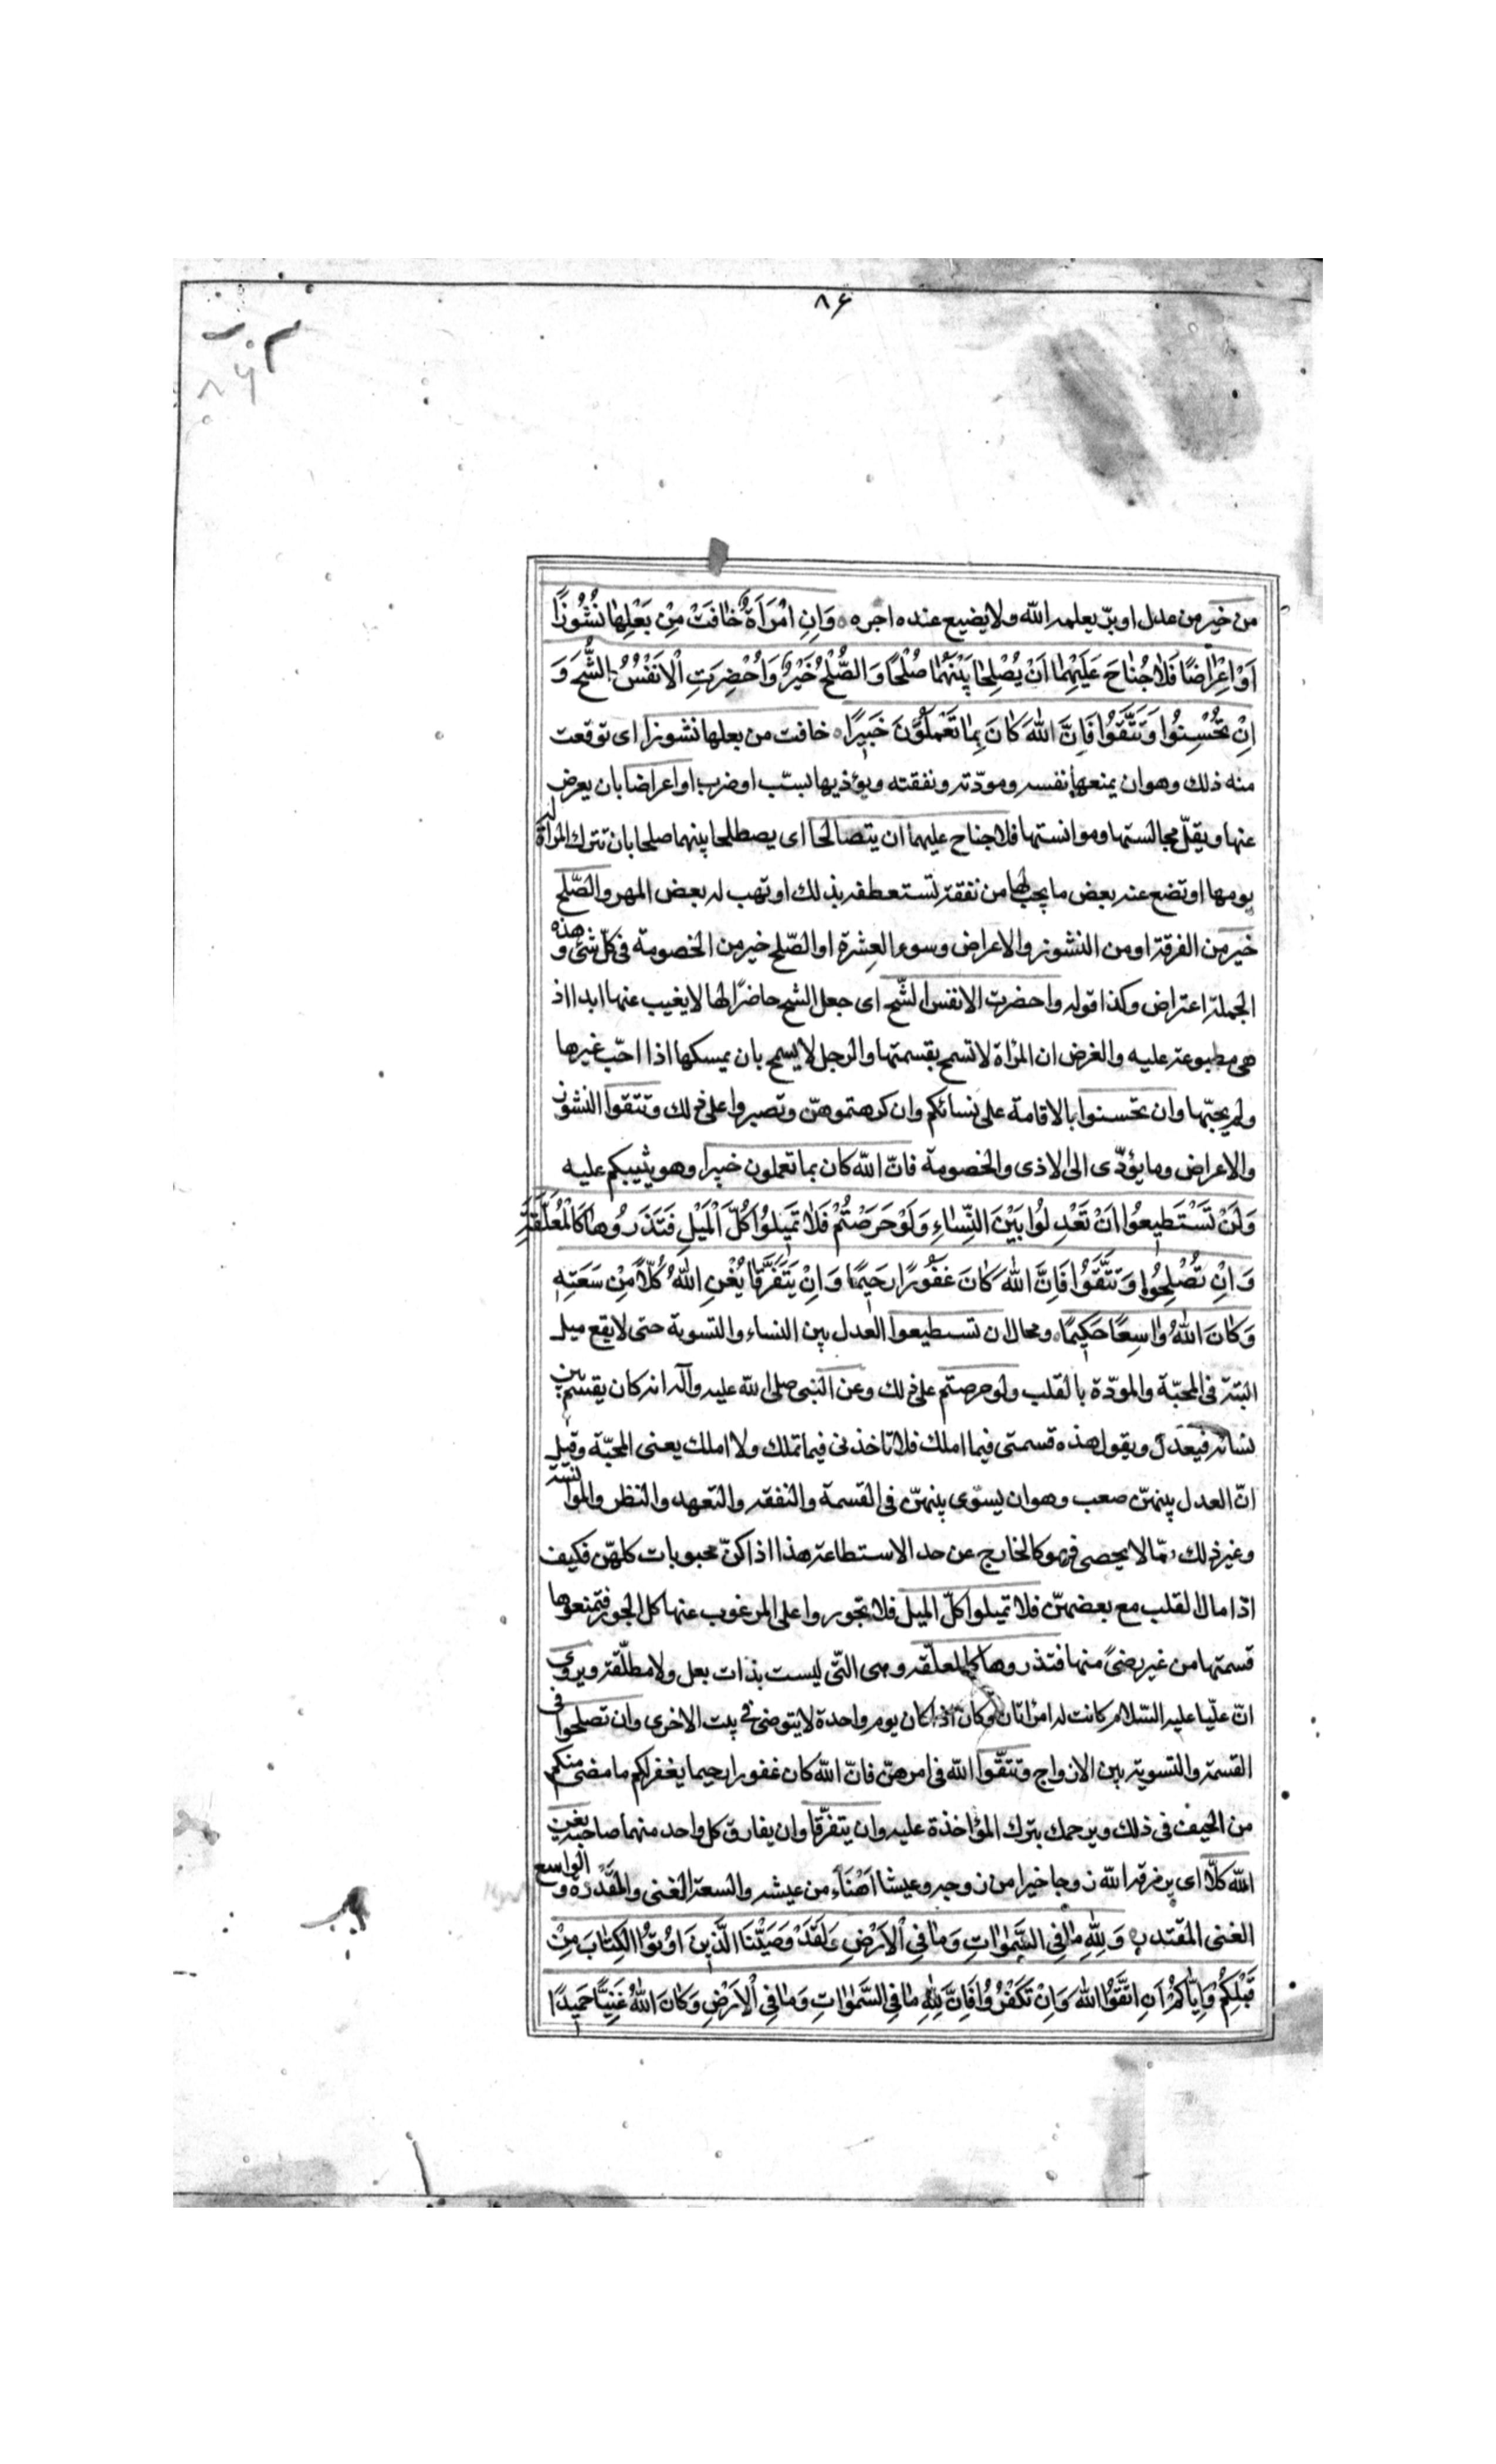 ٨۶
٨٦
من خير من عدل او برّ يعلمه الله ولا يضيع عنده اجره وَاِنِ امْرَاَةٌ خَافَتْ مِنْ بَعْلِهَا نُشُوزًا
اَوْ اِعْرَاضًا فَلَا جُنَاحَ عَلَيْهِمَا اَنْ يُصْلِحَا بَيْنَهُمَا صُلْحًا وَالصُّلْحُ خَيْرٌ وَاُحْضِرَتِ الْاَنْفُسُ الشُّحَّ وَ
اِنْ تُحْسِنُوا وَتَتَّقُوا فَاِنَّ اللّٰهَ كَانَ بِمَا تَعْمَلُونَ خَبِيرًا خافت من بعلها نشوزا اى توقعت
منه ذلك وهو ان يمنعها نفسه ومودّته ونفقته ويؤذيها بسبّ او ضرب او اعراضا بان يعرض
عنها ويقلّ مجالستها وموانستها فلا جناح عليهما ان يتصالحا اى يصطلحا بينهما صلحا بان تترك المرأة له
يومها او تضع عنه بعض ما يجب لها من نفقة لتستعطفه بذلك او تهب له بعض المهر والصّلح
خير من الفرقة او من النشوز والاعراض وسوء العِشرة او الصّلح خير من الخصومة فى كلّ شئ و هذه
الجملة اعتراض وكذا قوله واحضرت الانفس الشّح اى جعل الشح حاضرًا لها لا يغيب عنها ابدا اذ
هى مطبوعة عليه والغرض ان المرأة لا تسمح بقسمتها والرجل لا يسمح بان يمسكها اذا احّب غيرها
ولم يحبّها وان تحسنوا بالاقامة على نسائكم وان كرهتموهنّ وتصبروا على ذلك وتتقوا النشوز
والاعراض وما يؤدّى الى الاذى والخصومة فانّ الله كان بما تعملون خبيرا وهو يثيبكم عليه
وَلَنْ تَسْتَطِيعُوا اَنْ تَعْدِلُوا بَيْنَ النِّسَاءِ وَلَوْ حَرَصْتُمْ فَلَا تَمِيلُوا كُلَّ الْمَيْلِ فَتَذَرُوهَا كَالْمُعَلَّقَةِ
وَاِنْ تُصْلِحُوا وَتَتَّقُوا فَاِنَّ اللّٰهَ كَانَ غَفُورًا رَحِيمًا وَاِنْ يَتَفَرَّقَا يُغْنِ اللّٰهُ كُلًّا مِنْ سَعَتِهِ
وَكَانَ اللّٰهُ وَاسِعًا حَكِيمًا ومحال ان تستطيعوا العدل بين النساء والتسوية حتى لا يقع ميل
البتة فى المحبّة والمودّة بالقلب ولو حرصتم على ذلك وعن النبى صلى الله عليه وآله انه كان يقسم بين
نسائه فيعدل ويقول هذه قسمتى فيما املك فلا تاخذنى فيما تملك ولا املك يعنى المحبّة وقيل
انّ العدل بينهنّ صعب وهو ان يسوّى بينهنّ فى القسمة والنفقه والتعهد والنظر والموانسة
وغير ذلك ممّا لا يحصى فهو كالخارج عن حد الاستطاعة هذا اذا كنّ محبوبات كلهنّ فكيف
اذا مال القلب مع بعضهنّ فلا تميلوا كلّ الميل فلا تجوروا على المرغوب عنها كل الجور فتمنعوها
قسمتها من غير رضىً منها فتذروها كالمعلقه وهى التّى ليست بذات بعل ولا مطلّقة ويروى
انّ عليّا عليه السّلام كانت له امرأتان وكان اذا كان يوم واحدة لا يتوضئ فى بيت الاخرى وان تصلحوا فى
القسمة والتسوية بين الازواج وتتقّوا الله فى امرهنّ فانّ الله كان غفورا رحيما يغفر لكم ما مضى منكم
من الحيف فى ذلك ويرحمك بترك المؤاخذة عليه وان يتفرّقا وان يفارق كل واحد منهما صاحبه يغن
الله كلّا اى يرزقه الله زوجا خيرا من زوجه وعيشا اهنَاَء من عيشه والسعة الغنى والمقدرة و الواسع
الغنى المقتدر وَلِلّٰهِ مَا فِى السَّمٰوَاتِ وَمَا فِى الْاَرْضِ وَلَقَدْ وَصَيَّنَا الَّذِينَ اُوتُوا الْكِتَابَ مِنْ
قَبْلِكُمْ وَاِيَّاكُمْ اَنِ اتَّقُوا اللّٰهَ وَاِنْ تَكْفُرُوا فَاِنَّ لِلّٰهِ مَا فِى السَّمٰوَاتِ وَمَا فِى الْاَرْضِ وَكَانَ اللّٰهُ غَنِيًّا حَمِيدًا